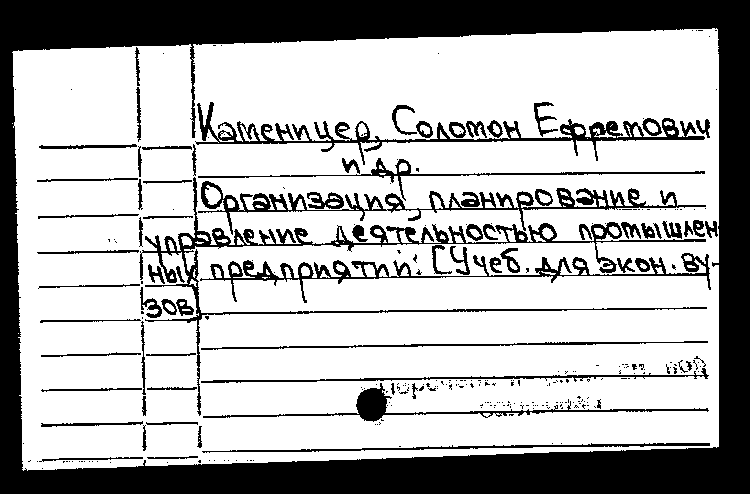 Каменицер, Соломон Ефремович
и др.
Организация, планирование и
управление деятельностью промышлен
ных предприятий: [Учеб. для экон. ву-
зов].
см. под